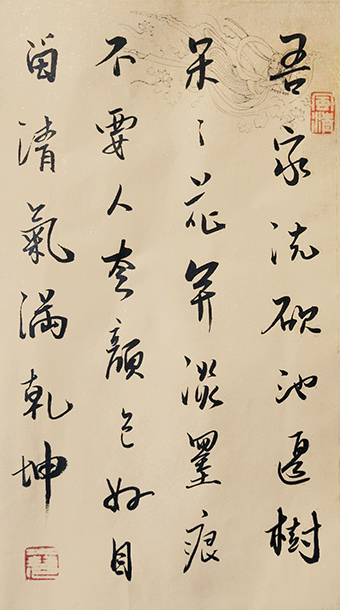 吾家洗硯池邊樹
朵〻花開淡墨痕
不要人夸顔色好只
留清氣滿乾坤